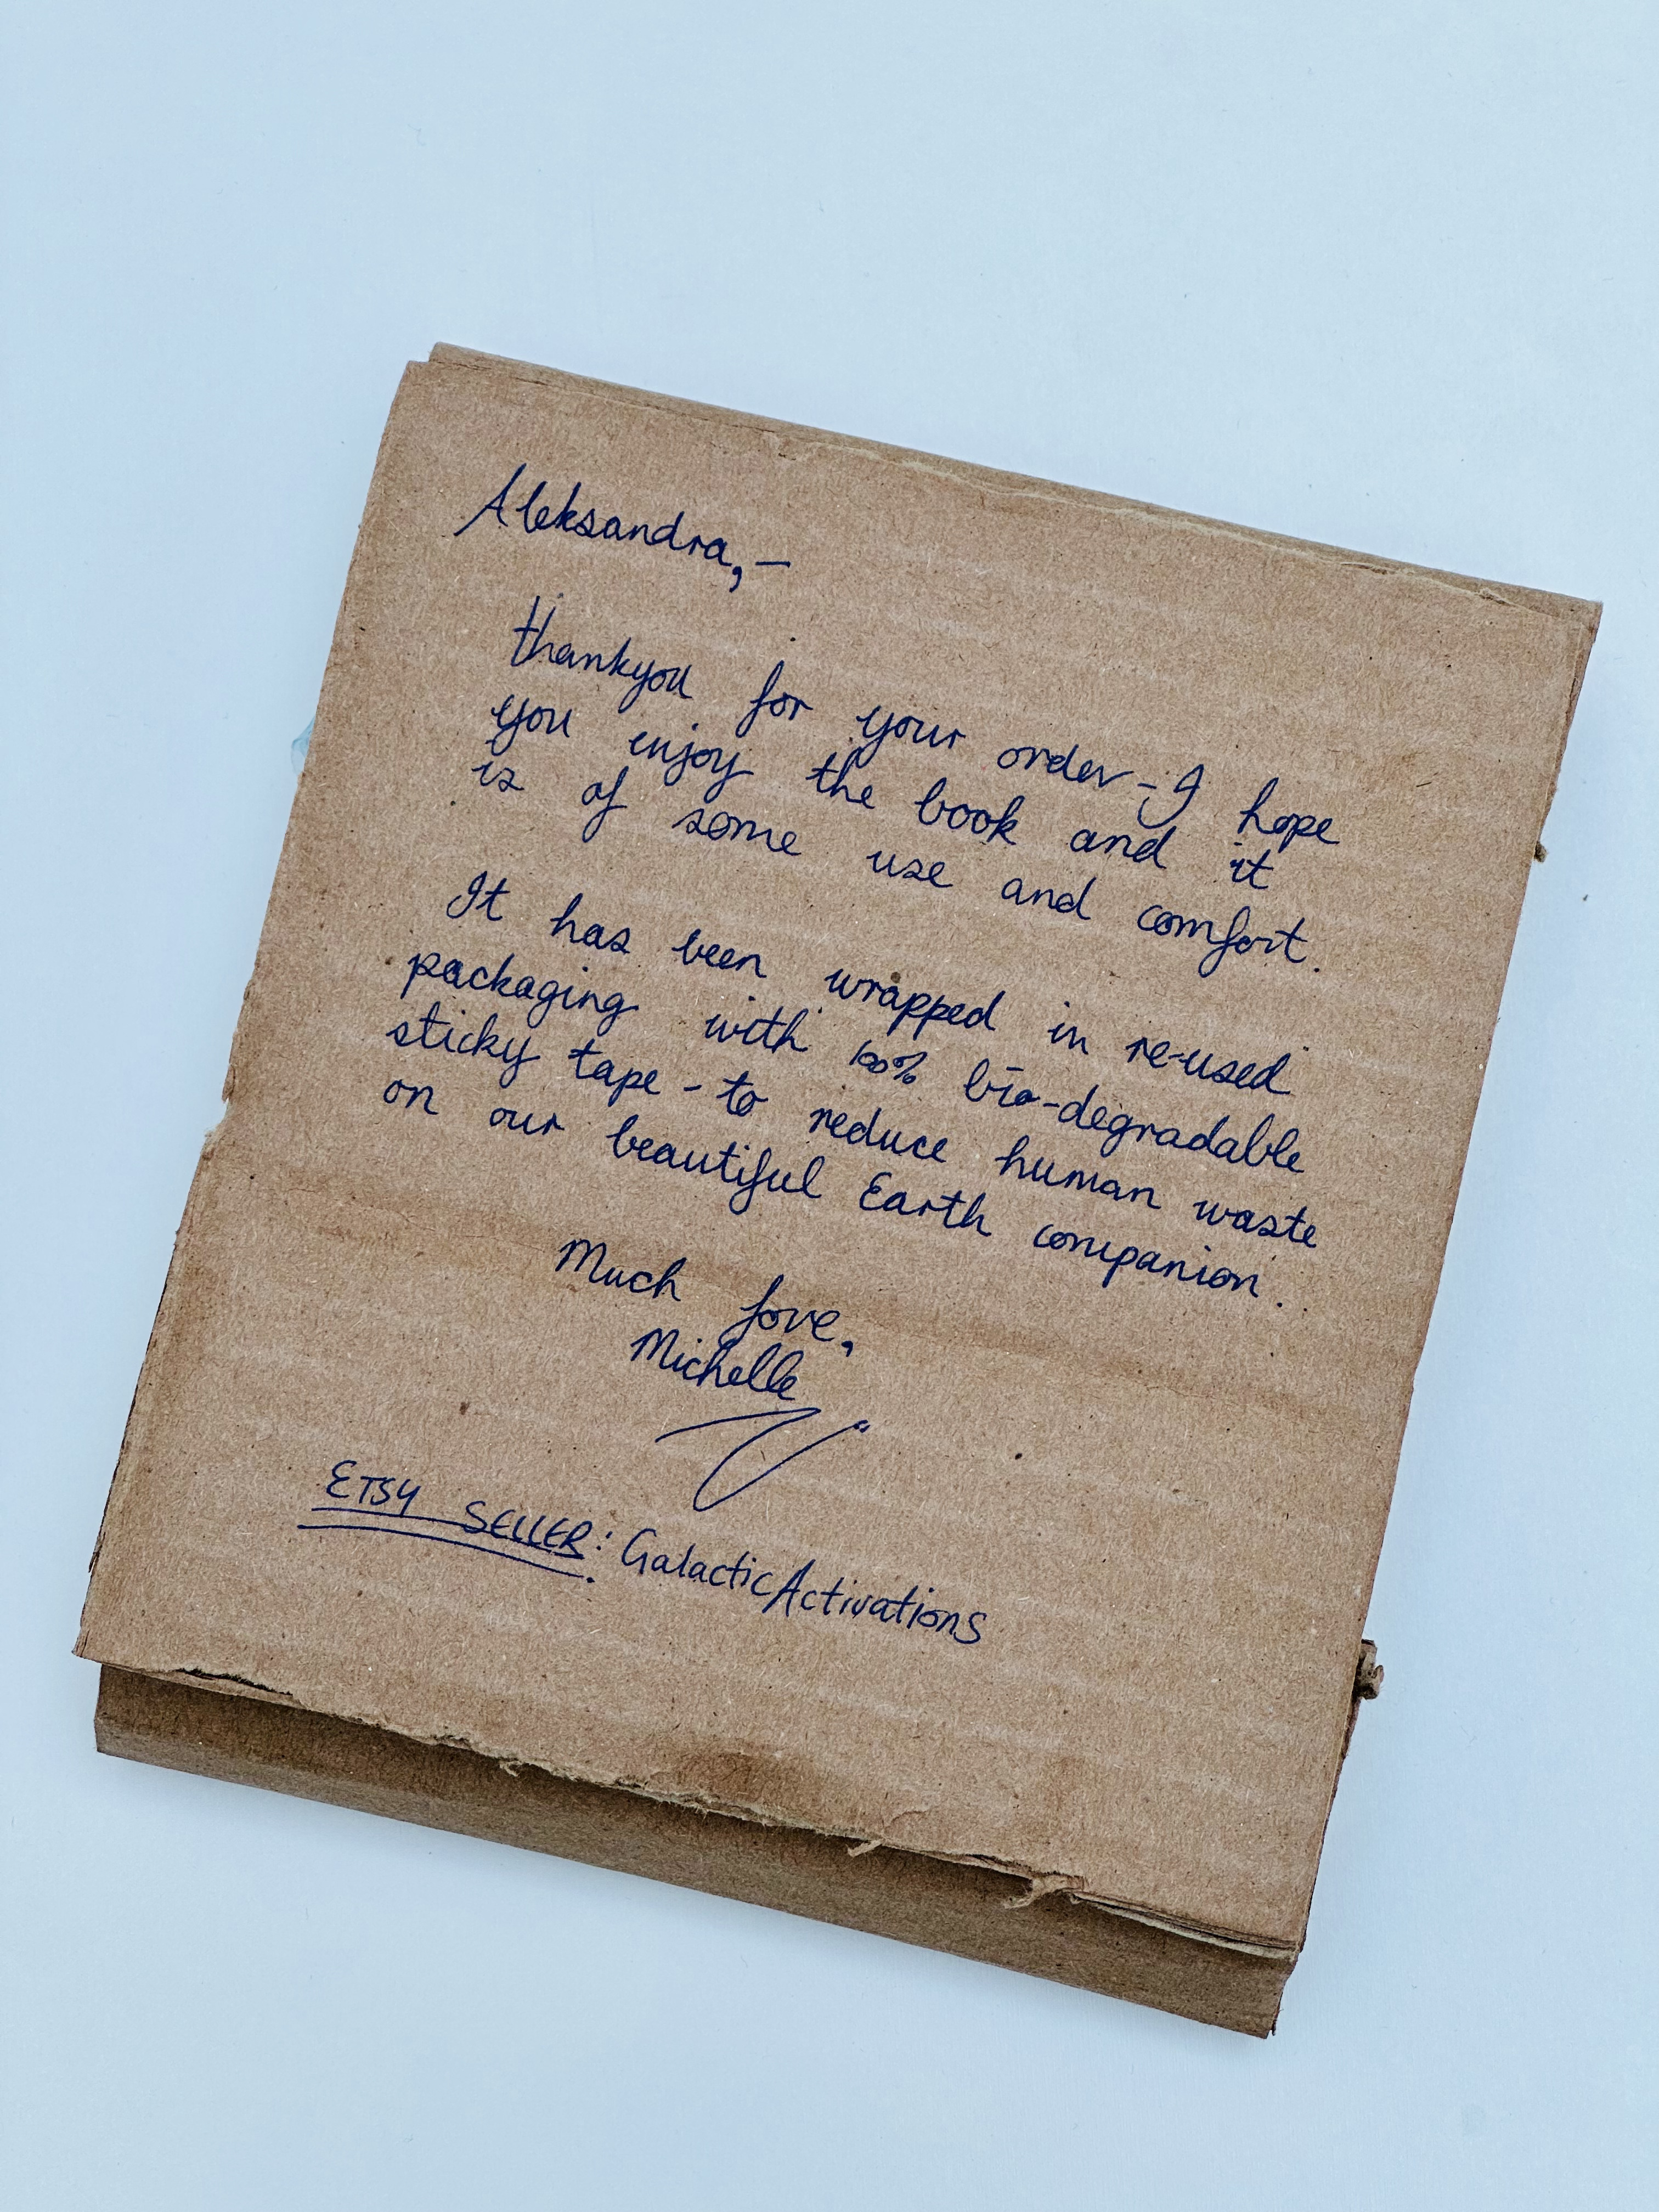 Aleksandra,-
thankyou for your order - I hope
you enjoy the book and it
is of some use and comfort.
It has been wrapped in re-used
packaging with 100% bio-degradable
sticky tape - to reduce human waste
on our beautiful Earth companion..
Much love,
Michelle
ETSY SELLER: GalacticActivations